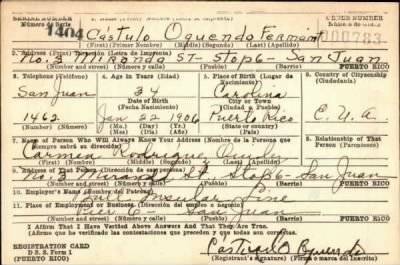 SERIAL NUMBER
ORDER NUMBER
Número de Serie
1404
Castulo Oquendo
000783
(First) Primer Nombre) (Middle) (Segundo Nombre) (Last) (Apellido)
2. Address (Print) Dirección (Letra de Imprenta)
No. 3 Miranda St- Stop 6- San Juan
(Number and street) (Número y calle) (Town) (Ciudad o Pueblo) PUERTO RICO
3. Telephone (Teléfono)
4. Age in Years (Edad)
5. Place of Birth (Lugar de Nacimiento)
6. Country of Citizenship (Ciudadanía)
San Juan
34
Carolina
Date of Birth
(Fecha Nacimiento)
City or Town
(Ciudad o Pueblo)
1462
Jan 22 1906
Puerto Rico
E. U. A.
(No.)
(Mo.) (Mes) (Day) (Día) (Yr.) (Año)
(State or country)
(Estado o país)
7. Name of Person Who Will Always Know Your Address (Nombre de la Persona que Siempre sabrá su dirección)
8. Relationship of That Person (Parentesco)
Carmen Rodriguez
9. Address of That Person (Dirección de esa Persona)
No. 3 Miranda St. Stop 6- San Juan
(Number and street) (Número y calle) (Town) (Ciudad o Pueblo) PUERTO RICO
10. Employer's Name (Nombre del Patrono)
Insular Line
11. Place of Employment or Business (Dirección del empleo o negocio)
San Juan
(Number and street) (Número y calle) (Town) (Ciudad o Pueblo) PUERTO RICO
I Affirm That I Have Verified Above Answers And That They Are True.
(Afirmo que he verificado las contestaciones que preceden y que todas son ciertas.)
REGISTRATION CARD
D. S. S. Form 1
(PUERTO RICO)
Oquendo
(Registrant's signature) (Firma o marca del Inscrito)